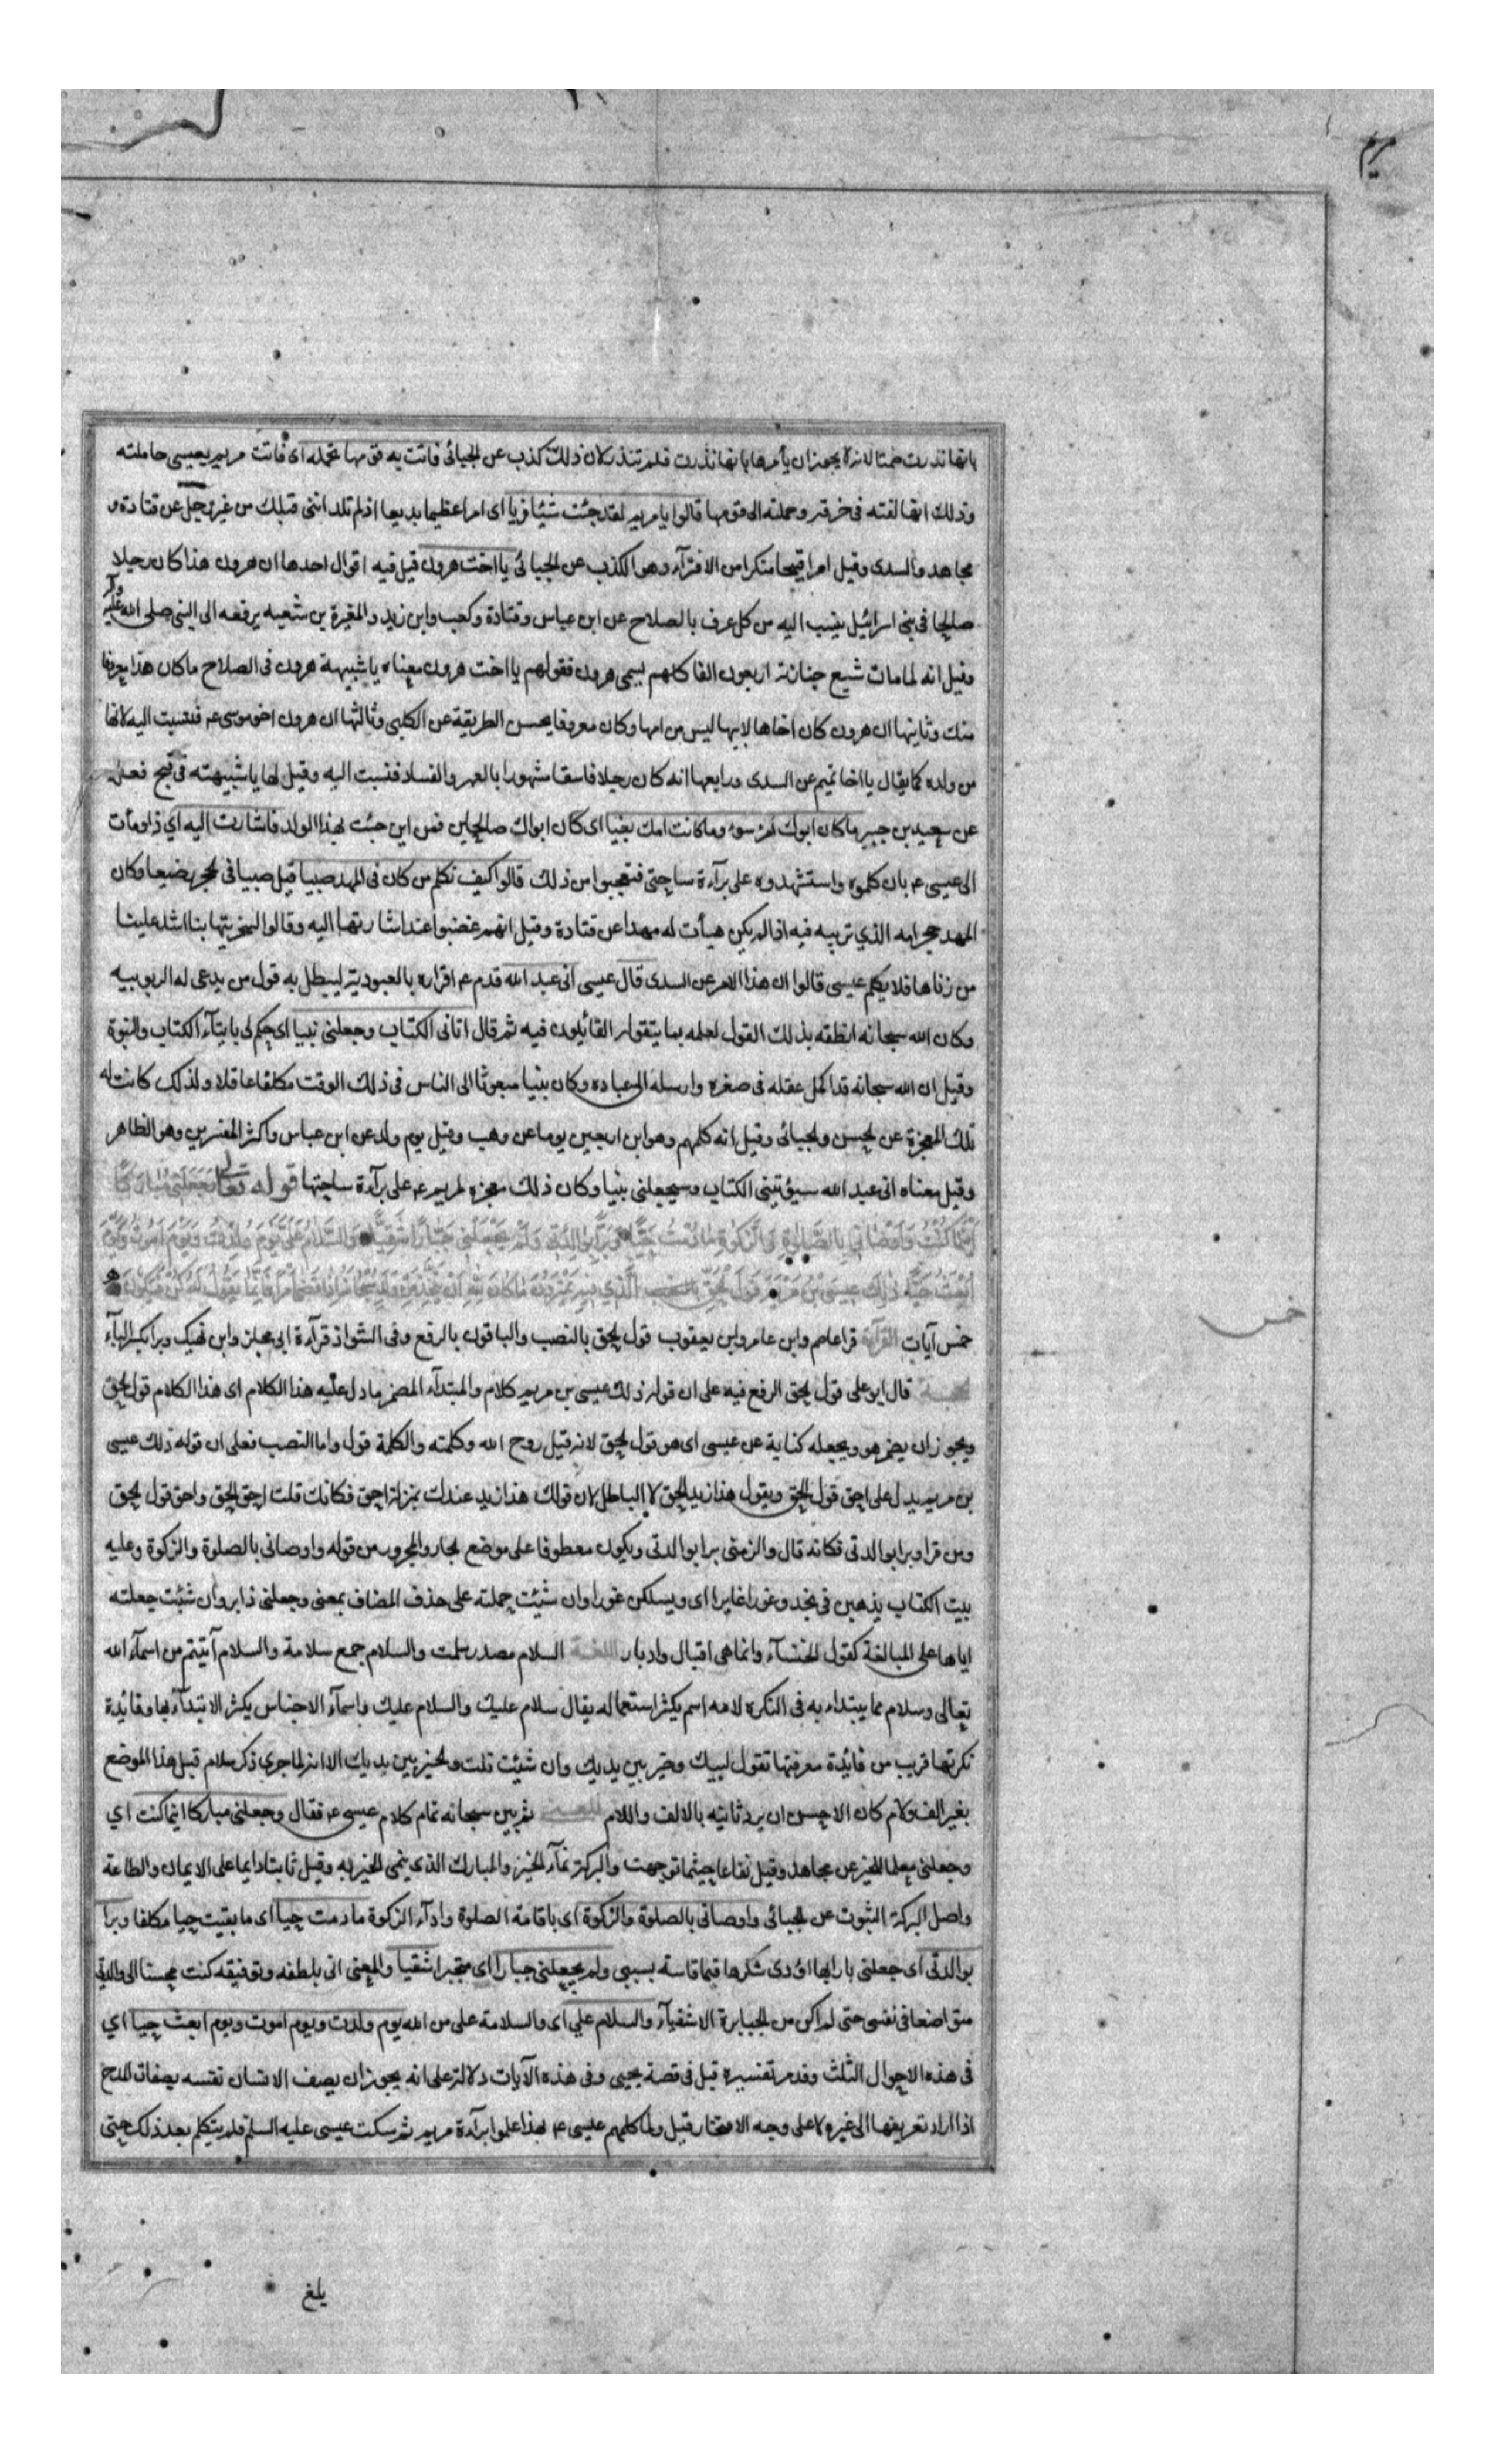 مريم
بانها نذرت صمتا لانه لا يجوز ان يأمرها بانها نذرت فلم تنذر لان ذلك كذب عن الجبائى فاتت به قومها تحمله اى فاتت مريم بعيسى حاملته
وذلك انها لفته فى خرقة وحملته الى قومها قالوا يا مريم لقد جئت شيئا فريا اى امرا عظيما بديعا اذ لم تلد انثى قبلك من غير رجل عن قتادة و
مجاهد والسدى وقيل امرا قبيحا منكرا من الافترآء وهو الكذب عن الجبائى يا اخت هرون قيل فيه اقوال احدها ان هرون هذا كان رجلا
صالحا فى بنى اسرائيل ينسب اليه من كل عرف بالصلاح عن ابن عباس وقتادة وكعب وابن زيد والمغيرة بن شعبه يرفعه الى النبى صلى الله عليه وآله
وقيل انه لما مات شيع جنازته اربعون الفا كلهم يسمى هرون فقولهم يا اخت هرون معناه يا شبيهة هرون فى الصلاح ما كان هذا معروفا
منك وثانيها ان هرون كان اخاها لابيها ليس من امها وكان معروفا بحسن الطريقة عن الكلبى وثالثها ان هرون اخو موسى عم فنسبت اليه لانها
من ولده كما يقال يا اخا تميم عن السدى ورابعها انه كان رجلا فاسقا مشهورا بالعهر والفساد فنسبت اليه وقيل لها يا شبيهته فى قبح فعله
عن سعيد بن جبير ما كان ابوك امرء سوء وما كانت امك بغيا اى كان ابواك صالحين فمن اين جئت بهذا الولد فاشارت اليه اي فاومأت
الى عيسى عم بان كلموه واستشهدوه على برآءة ساحتى فتعجبوا من ذلك قالوا كيف نكلم من كان فى المهد صبيا قيل صبيا فى الحجر رضيعا وكان
المهد حجر امه الذي تربيه فيه اذ لم يكن هيأت له مهدا عن قتادة وقيل انهم غضبوا عند اشارتها اليه وقالوا لسخريتها بنا اشد علينا
من زناها فلا يكلم عيسى قالوا ان هذا الامر عن السدى قال عيسى انى عبد الله قدم عم اقراره بالعبودية ليبطل به قول من يدعى له الربوبيه
وكان الله سبحانه انطقه بذلك القول لعلمه بما يتقوله القائلون فيه ثم قال اتانى الكتاب وجعلنى نبيا اى حكم لى بايتآء الكتاب والنبوة
وقيل ان الله سبحانه قد اكمل عقله فى صغره وارسله الى عباده وكان نبيا مبعوثا الى الناس فى ذلك الوقت مكلفا عاقلا ولذلك كانت له
تلك المعجزة عن الحسن والجبائى وقيل انه كلمهم وهو ابن اربعين يوما عن وهب وقيل يوم ولد عن ابن عباس واكثر المفسرين وهو الظاهر
وقيل معناه انى عبد الله سيؤتينى الكتاب وسيجعلنى نبيا وكان ذلك معجزه لمريم عم على برآءة ساحتها قوله تعالى وَجَعَلَنِي مُبَارَكًا
اَيْنَمَا كُنْتُ وَاَوْصَانِي بِالصَّلٰوةِ وَالزَّكٰوةِ مَا دُمْتُ حَيًّا وَبَرًّا بِوَالِدَتِي وَلَمْ يَجْعَلْنِي جَبَّارًا شَقِيًّا وَالسَّلَامُ عَلَيَّ يَوْمَ وُلِدْتُ وَيَوْمَ اَمُوتُ وَيَوْمَ
اُبْعَثُ حَيًّا ذٰلِكَ عِيسَى بْنُ مَرْيَمَ قَوْلَ الْحَقِّ الَّذِي فِيهِ يَمْتَرُونَ مَا كَانَ لِلّٰهِ اَنْ يَتَّخِذَ مِنْ وَلَدٍ سُبْحَانَهُ اِذَا قَضٰى اَمْرًا فَاِنَّمَا يَقُولُ لَهُ كُنْ فَيَكُونُ
خمس آيات القرآءة قرا عاصم وابن عامر وابن يعقوب قول الحق بالنصب والباقون بالرفع وفى الشواذ قرآءة ابى مجلز وابن نهيك وبرا بكسر البآء
الحجة قال ابو على قول الحق الرفع فيه على ان قوله ذلك عيسى بن مريم كلام والمبتدآء المضمر ما دل عليه هذا الكلام اى هذا الكلام قول الحق
ويجوز ان يضمر هو ويجعله كناية عن عيسى اى هو قول الحق لانه قيل روح الله وكلمته والكلمة قول واما النصب فعلى ان قوله ذلك عيسى
بن مريم يدل على احق قول الحق ويقول هذا زيد الحق لا الباطل لان قولك هذا زيد عندك بمنزلة احق فكانك قلت احق الحق واحق قول الحق
ومن قرا وبرا بوالدتى فكانه قال والزمنى برا بوالدتى ويكون معطوفا على موضع الجار والمجرور من قوله واوصانى بالصلوة والزكوة وعليه
بيت الكتاب يذهبن فى نجد وغورا غايرا اى ويسلكن غورا وان شئت حملته على حذف المضاف بمعنى وجعلنى ذا بر وان شئت جعلته
اياها على المبالغة كقول الخنسآء وانما هى اقبال وادبار اللغة السلام مصدر سلمت والسلام جمع سلامة والسلام من اسمآء الله
تعالى وسلام مما يبتداء به فى النكره لانه اسم يكثر استعماله يقال سلام عليك والسلام عليك واسمآء الاجناس يكثر الابتدآء بها وفائدة
نكرتها قريب من فائدة معرفتها تقول لبيك وخير بين يديك وان شئت قلت والخير بين يديك الا انه لما جرى ذكر سلام قبل هذا الموضع
بغير الف ولام كان الاحسن ان يرد ثانيه بالالف واللام المعنى ثم بين سبحانه تمام كلام عيسى عم فقال وجعلنى مباركا اينما كنت اي
وجعلنى معلما للخير عن مجاهد وقيل نفاعا حيثما توجهت والبركة نمآء الخير والمبارك الذى ينمى الخير به وقيل ثابتا دايما على الايمان والطاعة
واصل البركة الثبوت عن الجبائى واوصانى بالصلوة والزكوة اى باقامة الصلوة وادآء الزكوة ما دمت حيا اى ما بقيت حيا مكلفا وبرا
بوالدتى اى جعلنى بارا بها اؤدى شكرها فيما قاسته بسببى ولم يجعلنى جبارا اى متجبرا شقيا والمعنى انى بلطفه وتوفيقه كنت محسنا الى والدتى
متواضعا فى نفسى حتى لم اكن من الجبابرة الاشقيآء والسلام علي اى والسلامة على من الله يوم ولدت ويوم اموت ويوم ابعث حيا اي
فى هذه الاحوال الثلث وقد مر تفسيره قبل فى قصة يحيى وفى هذه الآيات دلالة على انه يجوز ان يصف الانسان نفسه بصفات المدح
اذا اراد تعريفها الى غيره لا على وجه الافتخار قيل ولما كلمهم عيسى عم بهذا علموا برآءة مريم ثم سكت عيسى عليه السلم فلم يتكلم بعد ذلك حتى
خمس
بلغ